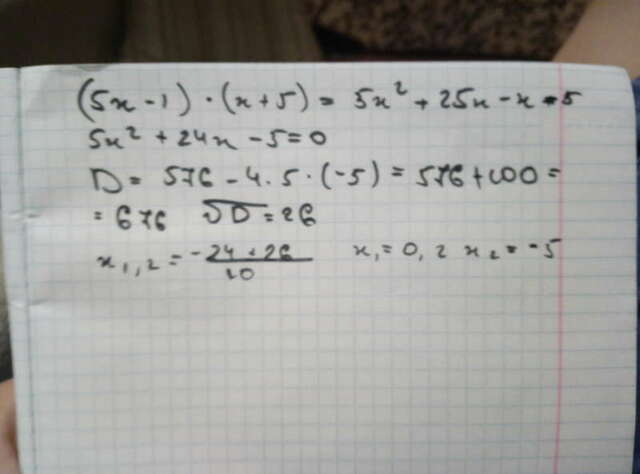 (5x - 1) · (x + 5) = 5x² + 25x - x - 5
5x² + 24x - 5 = 0
D = 576 - 4 · 5 · (-5) = 576 + 100 =
= 676 √D = 26
x₁,₂ = (-24 ± 26)/10 x₁ = 0,2 x₂ = -5